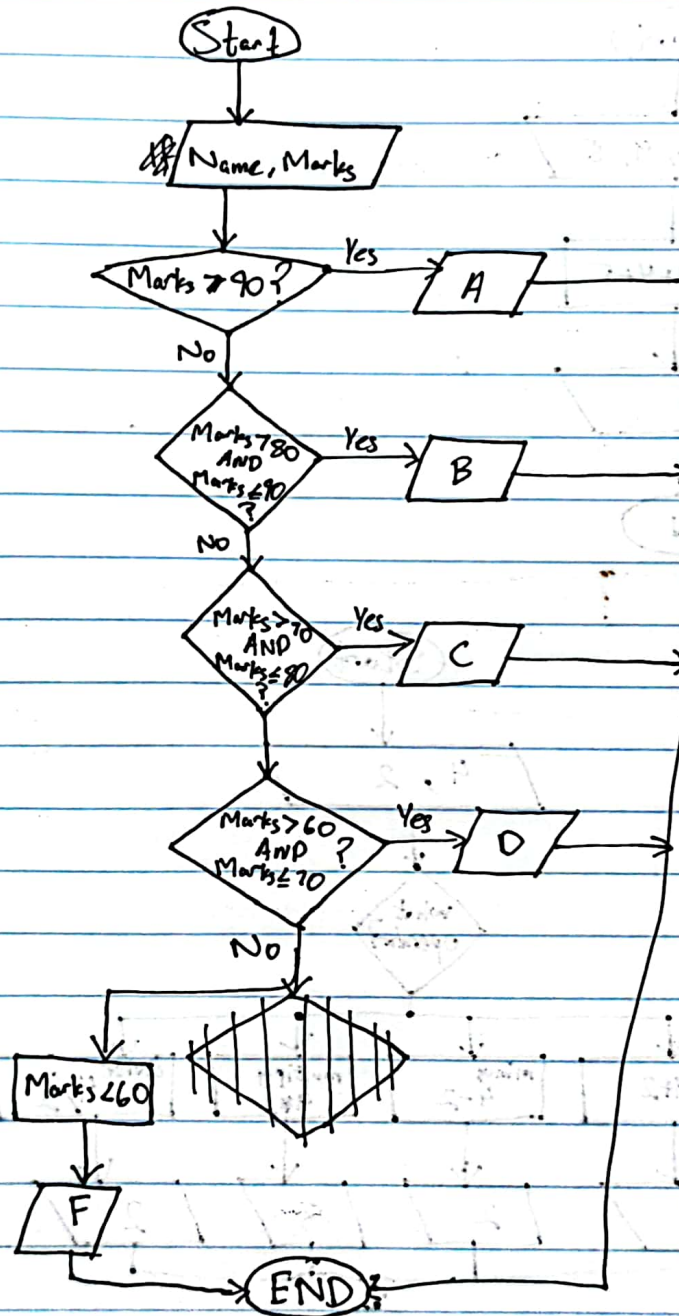 Start
Name, Marks
Marks > 90?
Yes
A
No
Marks > 80
AND
Marks ≤ 90
?
Yes
B
No
Marks > 70
AND
Marks ≤ 80
?
Yes
C
Marks > 60
AND
Marks ≤ 70
?
Yes
D
No
Marks < 60
F
END